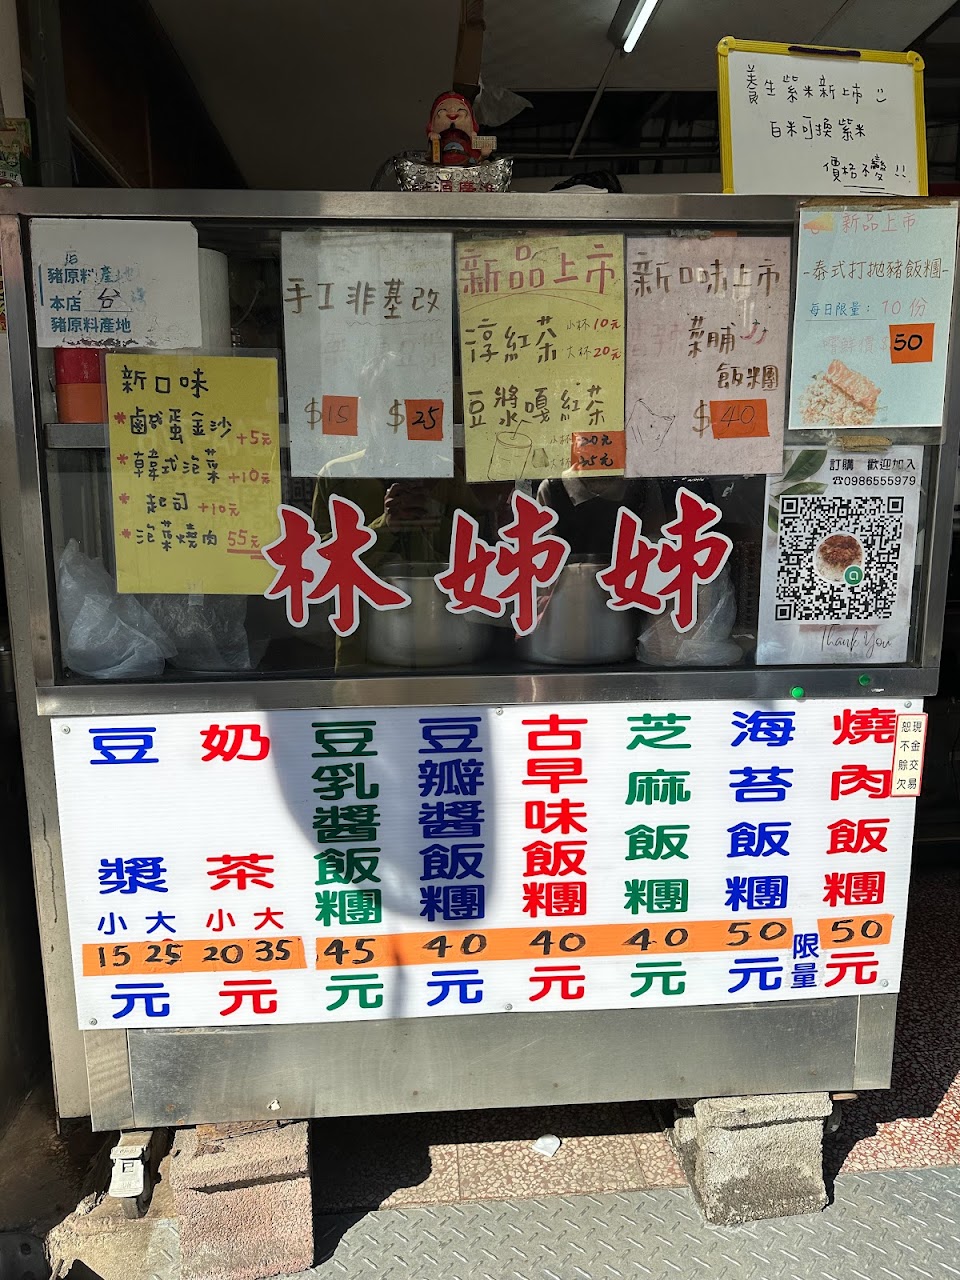 養生紫米新上市
白米可換紫米
價格不變!!
店
豬原料產地
本店 台
豬原料產地
手工非基改
$15 $25
新品上市
淳紅茶 小杯10元
大杯20元
豆漿嘎紅茶
小杯20元
大杯35元
新口味上市
菜脯
飯糰
$40
新品上市
-泰式打拋豬飯糰-
每日限量: 10份
50
新口味
*鹹蛋金沙+5元
*韓式泡菜+10元
*起司+10元
*泡菜燒肉 55元
訂購 歡迎加入
☎0986555979
Thank You
林姊姊
豆漿
小 大
15 25
元
奶茶
小 大
20 35
元
豆乳醬飯糰
45
元
豆瓣醬飯糰
40
元
古早味飯糰
40
元
芝麻飯糰
40
元
海苔飯糰
50
元
限量
燒肉飯糰
50
元
現金交易
恕不賒欠